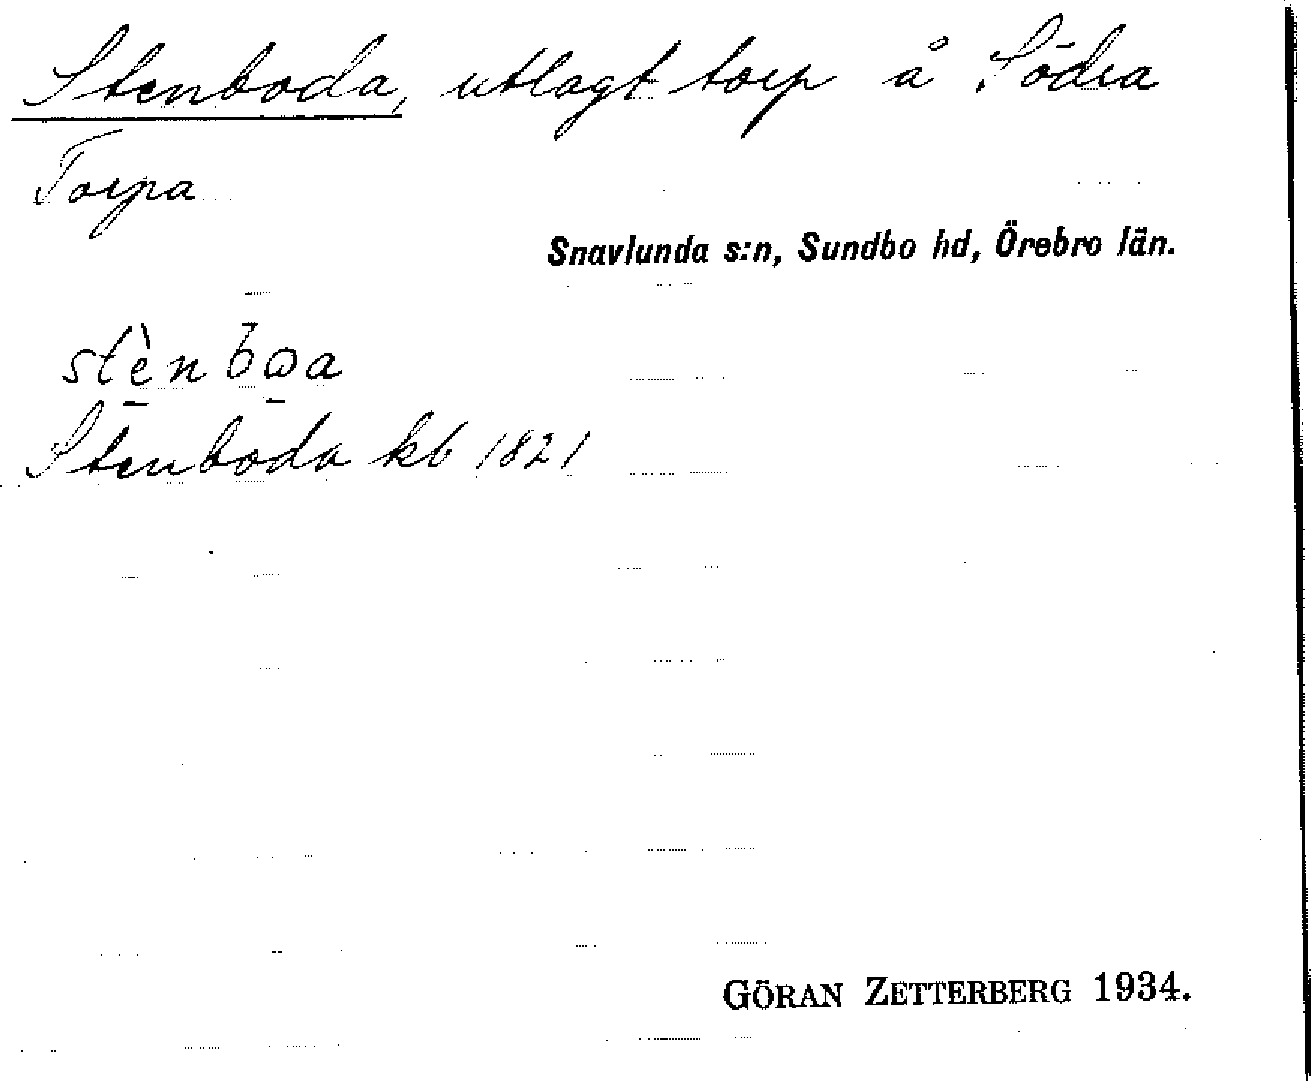 Stenboda, utlagt torp å Södra
Torpa
Snavlunda s:n, Sundbo hd, Örebro län.
stènboa
Stenboda kb 1821
GÖRAN ZETTERBERG 1934.